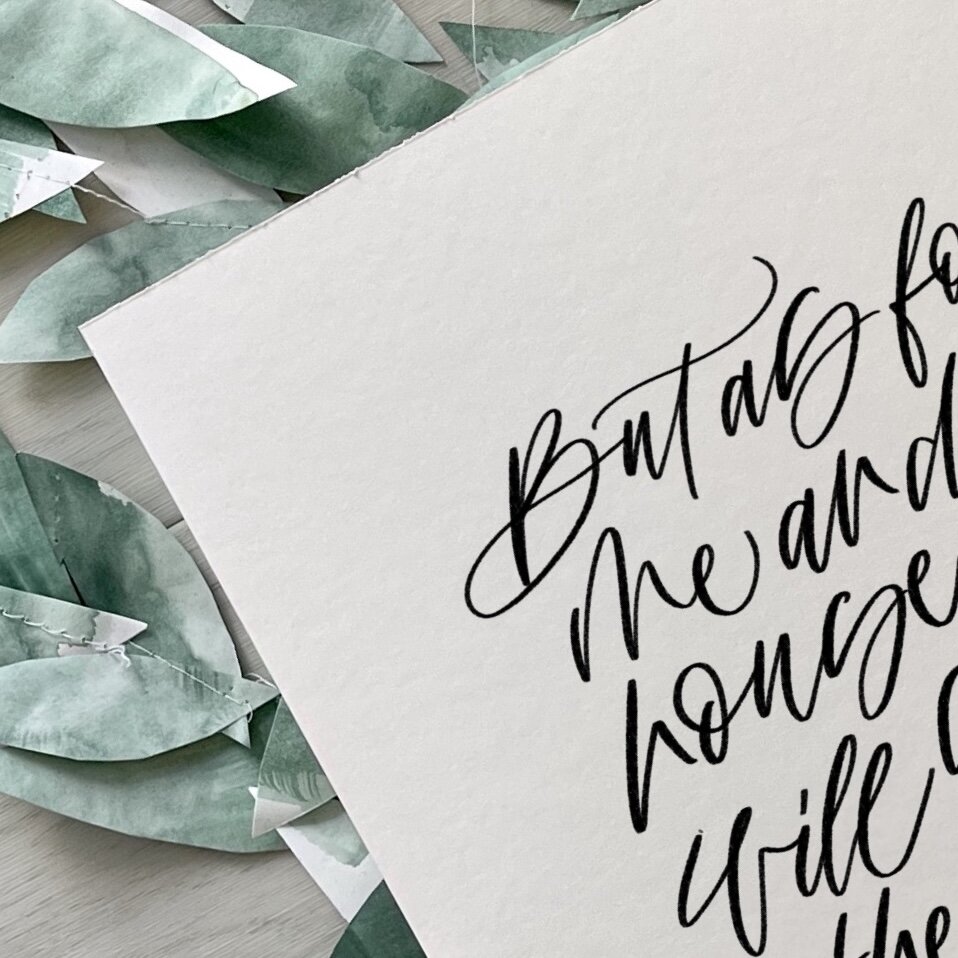 But as fo
me and
house
will
the